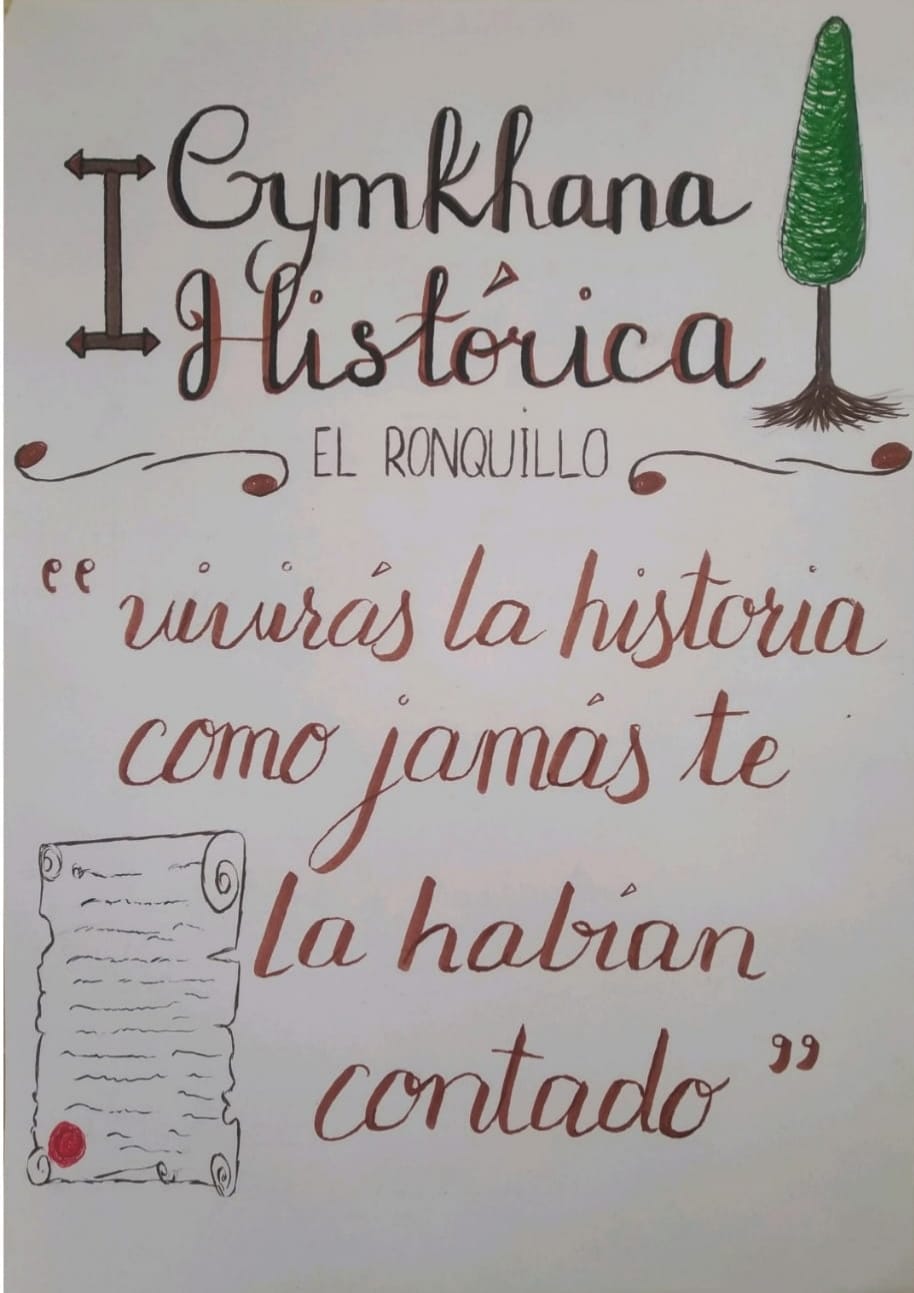 I Gymkhana
Histórica
EL RONQUILLO
“vivirás la historia
como jamás te
la habían
contado”